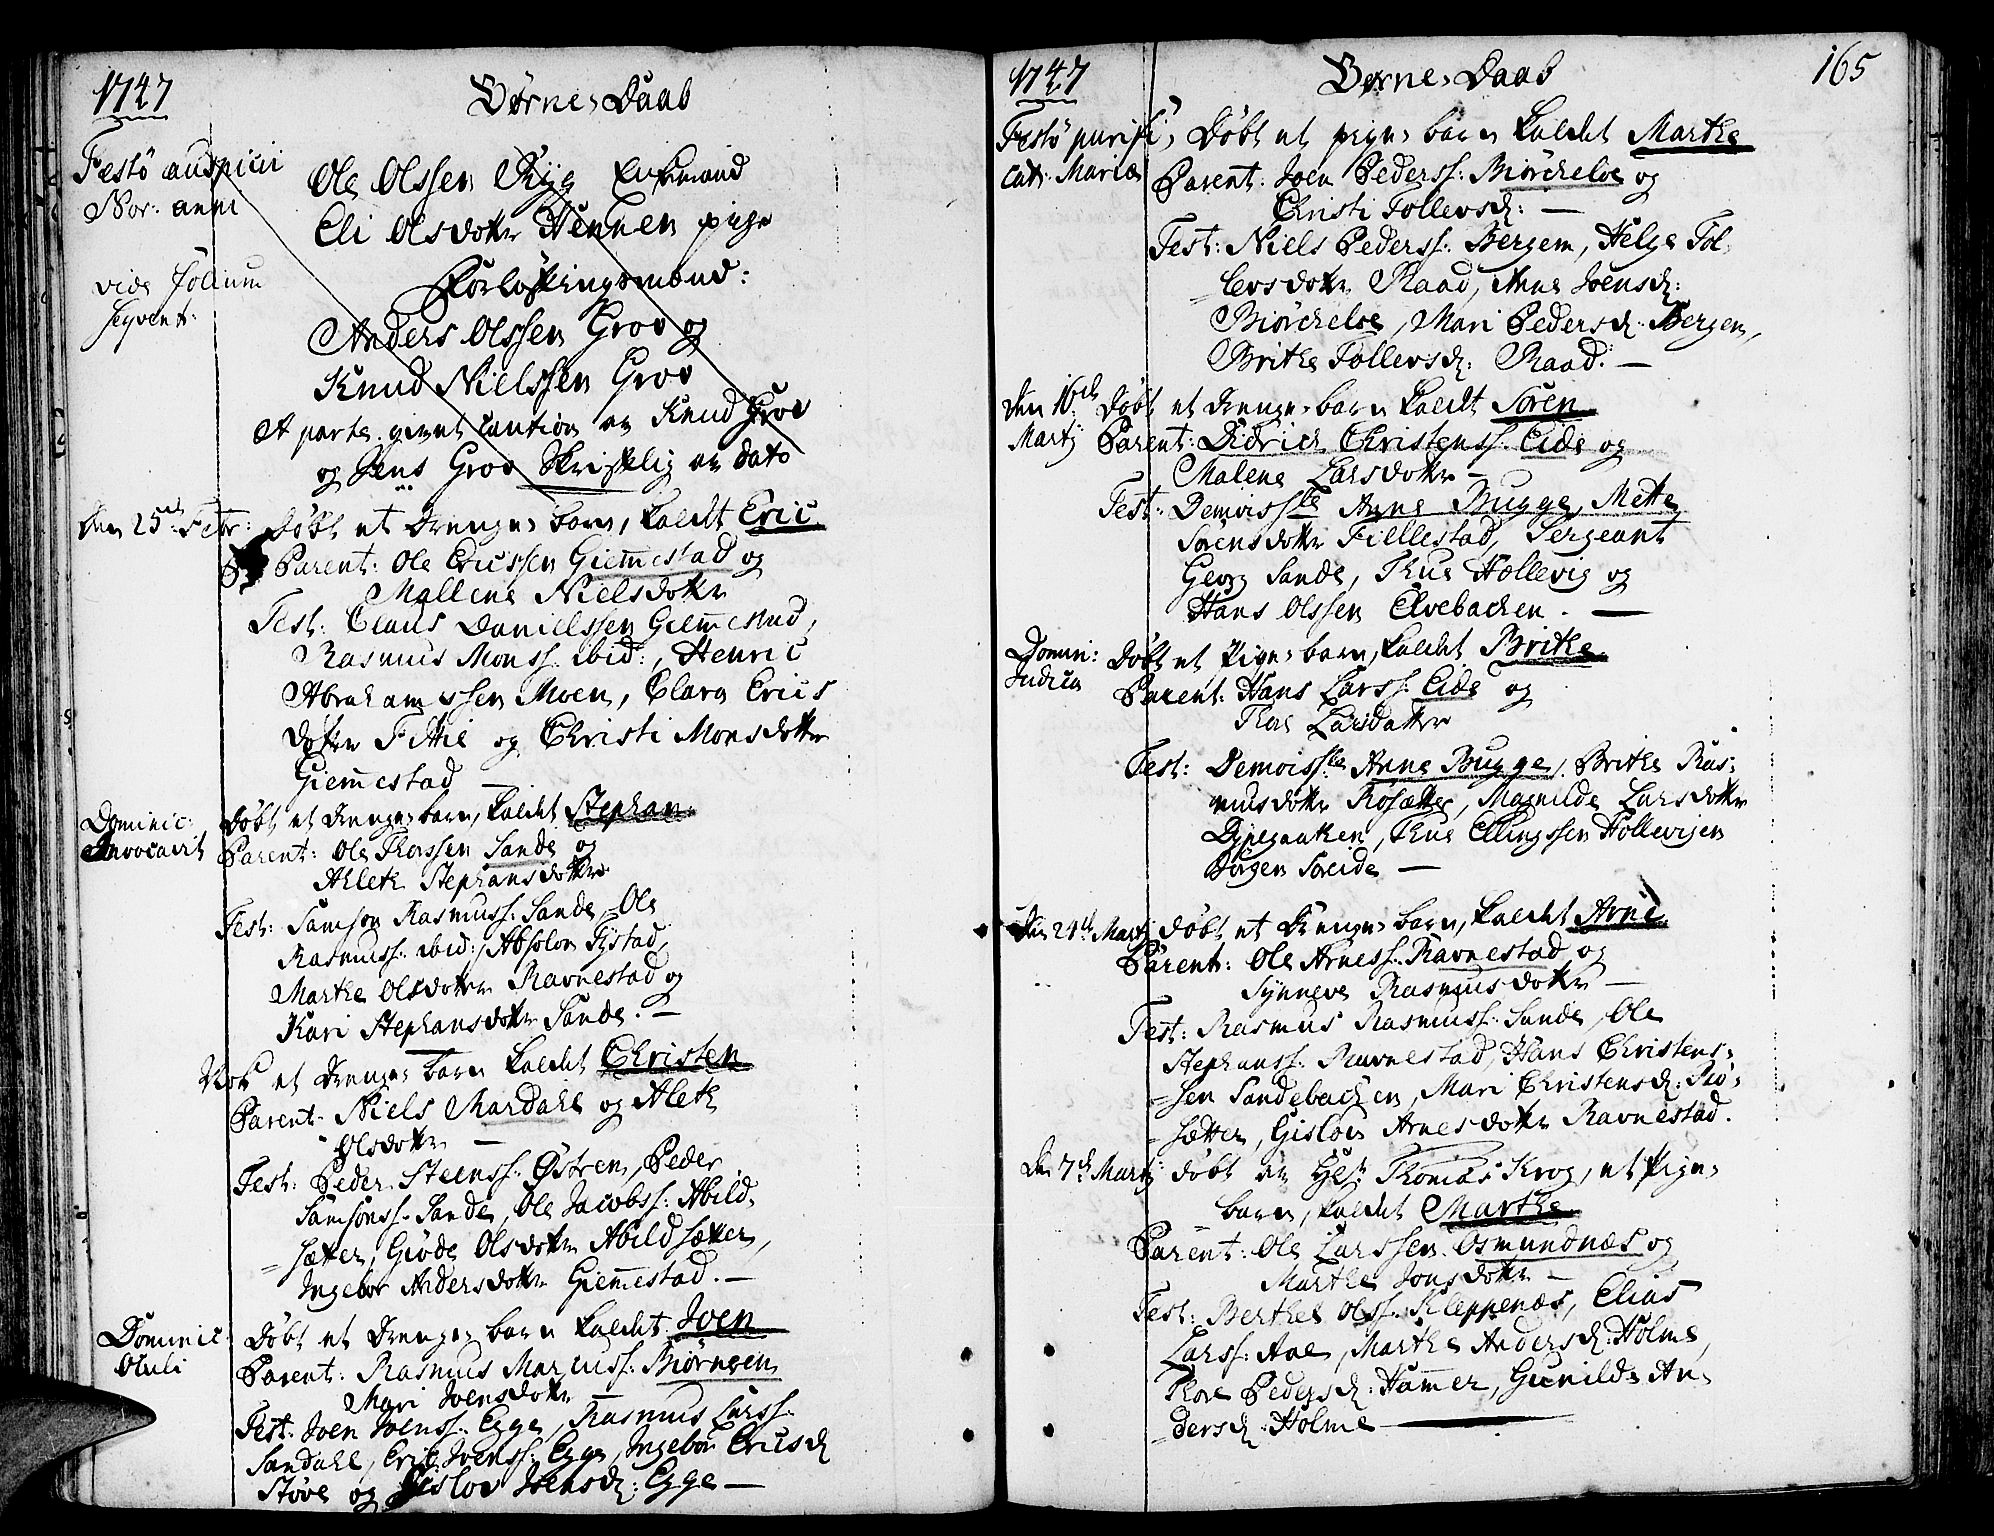 1747 Børne-Daab
Festo auspicii Ole Olssen Ryg Enkemand
Nov: anni Eli Olsdotter Hennen pige
vide folium Forlovningsmænd:
seqvent: Anders Olssen Grov og
Knud Nielssen Grov
A parte givet caution er Knud Grov
og Jens Grov Skriftlig er dato
Den 25de Febr: Døbt et Drenge-barn, kaldt Eric
Parent: Ole Ericssen Giem̄estad og
Mallene Nielsdotter
Test: Claus Danielssen Giem̄estad,
Rasmus Monss. ibid:, Henric
Abrahamssen Moen, Clara Erics
dotter Fittie og Christi Monsdotter
Giem̄estad —
Dominic: Døbt et Drenge-barn, kaldt Stephan
Invocavit Parent: Ole Thorssen Sande og
Ahleth Stephansdotter
Test: Samson Rasmuss: Sande, Ole
Rasmuss: ibid:, Absolon Tystad,
Marthe Olsdotter Ravnestad og
Kari Stephansdotter Sande. —
Nok et Drenge-barn kaldt Christen
Parent: Niels Mardahl og Aleth
Olsdotter —
Test: Peder Steenss: Østren, Peder
Samsonss. Sande, Ole Jacobss: Abild-
sætter, Giøde Olsdotter Abildsætter,
Ingebor Andersdotter Giem̄estad. —
Dominic: Døbt et Drenge-barn kaldt Joen
Oculi Parent: Rasmus Marcuss: Biørneen
Mari Joensdotter —
Test: Joen Joenss: Egge, Rasmus Larss.
Sandahl, Eric Joenss: Egge, Ingebor Ericsd
Støve og Gislov Joensd: Egge —
1747 Børne-Daab 165
Festo purifi- Døbt et pige-barn kaldet Marthe
cat: Mariæ Parent: Joen Pederss: Biørcheloe og
Christi Tollevsd: —
Test: Niels Pederss: Bergem, Helge Tol-
levsdotter Raad, Anne Joensd:
Biørcheloe, Mari Pedersd: Bergem,
Brithe Tollevsd: Raad. —
Den 16de Døbt et Drenge-barn kaldt Søren
Martij Parent: Didrich Christenss: Eide og
Malene Larsdotter —
Test: Demoisslle Anne Bugge, Mette
Sørensdotter Fiellestad, Sergeant
Georg Sande, Thue Hollevig og
Hans Olssen Elvebachen. —
Domin: Døbt et Pige-barn, kaldt Brithe
Judica Parent: Hans Larss: Eide og
Thore Larsdatter
Test: Demoisslle Anne Bugge, Brithe Ras-
musdotter Rosætter, Magnilde Larsdotter
Dynegaaken, Thue Ellingssen Hollevigen
Jørgen Søreide —
Den 24de Martij Døbt et Drenge-barn, kaldt Arne
Parent: Ole Arness: Ravnestad og
Synneve Rasmusdotter —
Test: Rasmus Rasmuss: Sande, Ole
Stephanss. Ravnestad, Hans Christens-
sen Sandebachen, Mari Christensd: Rø-
sætter, Gislov Arnesdotter Ravnestad.
Den 7de Martij døbt er Hr: Thomas Krog, et Pige-
barn, kaldt Marthe
Parent: Ole Larssen Osmundnæs og
Marthe Jonsdotter —
Test: Berthel Olss: Kleppenæs, Elias
Larss: Aae, Marthe Andersd: Holme,
Thore Pedersd: Ham̄er, Gunilde An-
dersd: Holme —